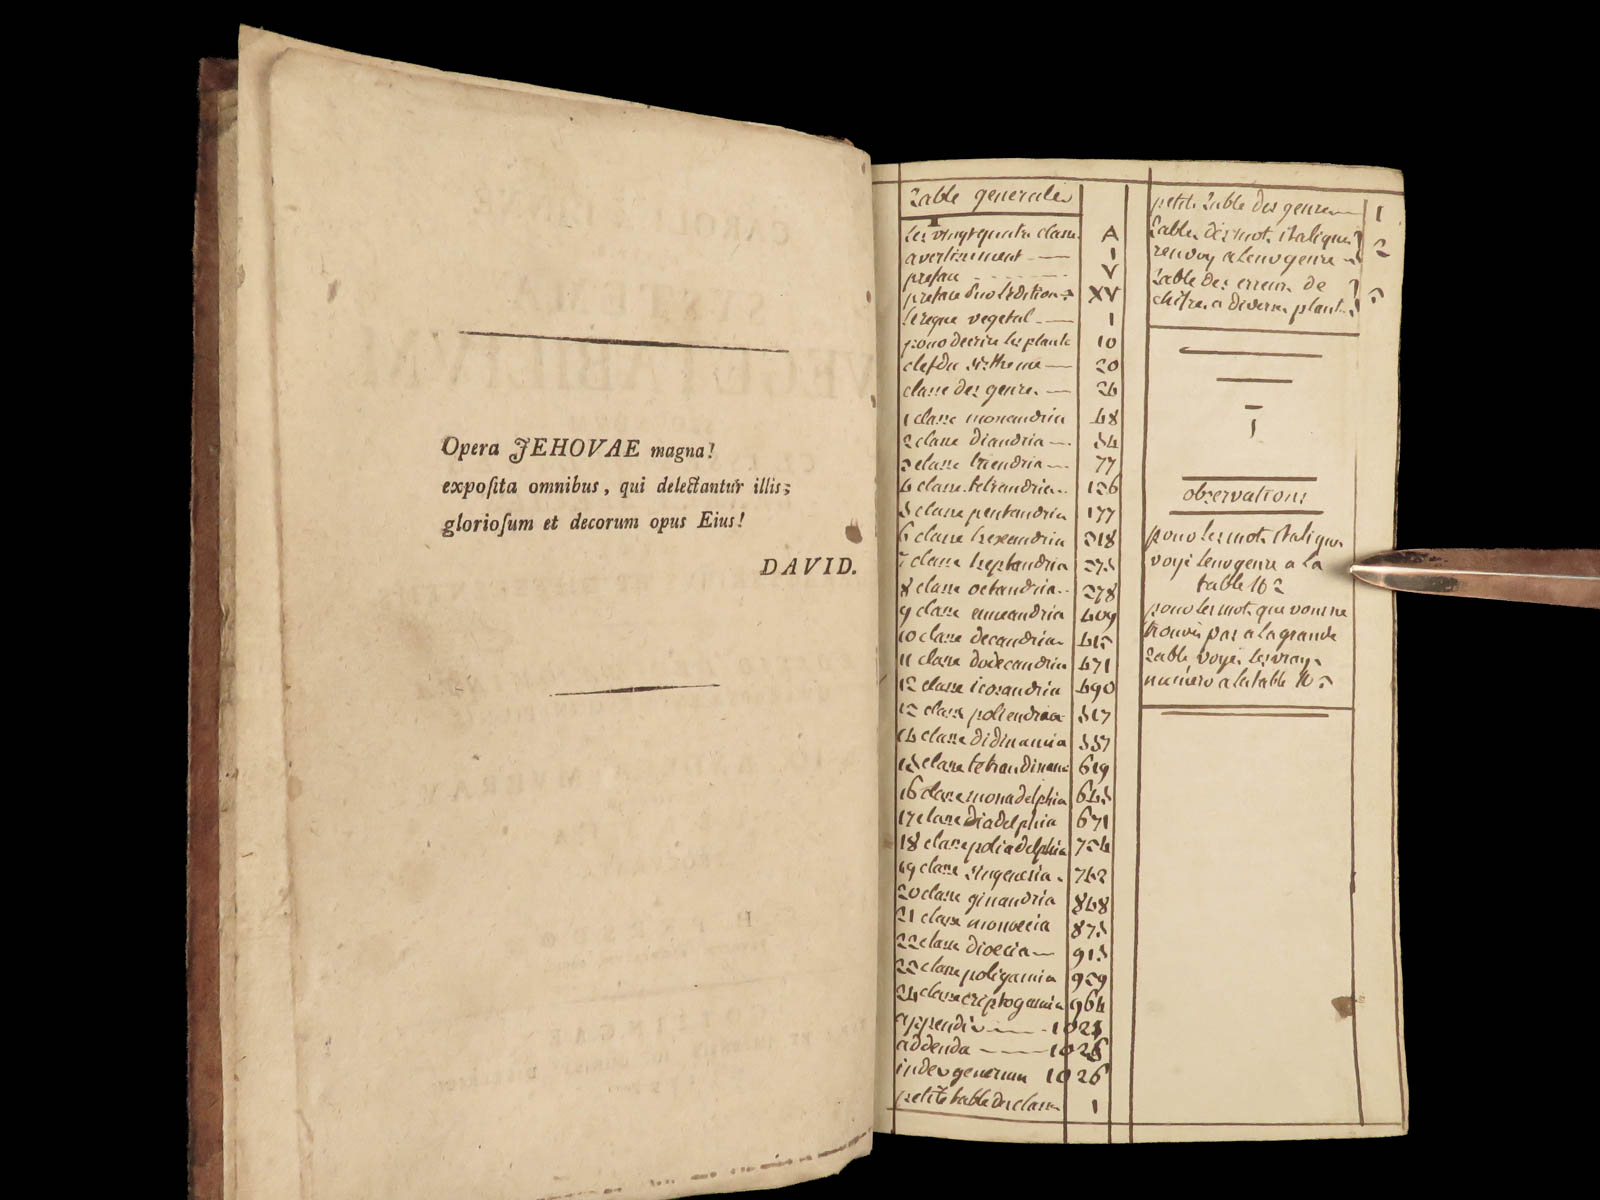 Opera JEHOVAE magna!
expoſita omnibus, qui delectantur illis;
glorioſum et decorum opus Eius!
DAVID.
table generale
les vingtquatre classe A
avertissement — 1
preface V
XV
le regne vegetal — 1
pour decrire les plante 10
clef du sistheme — 20
classe des genre — 26
1 classe monandria 48
2 classe diandria — 54
3 classe triendria — 77
4 classe tetrandria 126
5 classe pentandria 177
6 classe hexeandria 318
7 classe heptandria 275
8 classe octandria 278
9 classe enneandria 409
10 classe decandria 413
11 classe dodecandria 471
12 classe icosandria 490
13 classe poliendria 517
14 classe didinamia 557
15 classe tetraudinami 619
16 classe monadelphia 645
17 classe diadelphia 671
18 classe poliadelphia 724
19 classe singenesia 762
20 classe ginandria 848
21 classe monoecia 875
22 classe dioecia — 913
23 classe poligamia 929
24 classe criptogamia 964
appendix — 1025
addenda — 1026
index generum 1026
petite table des classe 1
petite table des genre — 1
table des mot italique 2
renvoy a leur genre
table des erreur de 3
chifre a diverse plant
observations
pour les mot italique
voyé leur genre a la
table 2
pour les mot que vous ne
trouvés pas a la grande
table voyés les vray
numéro a la table 3